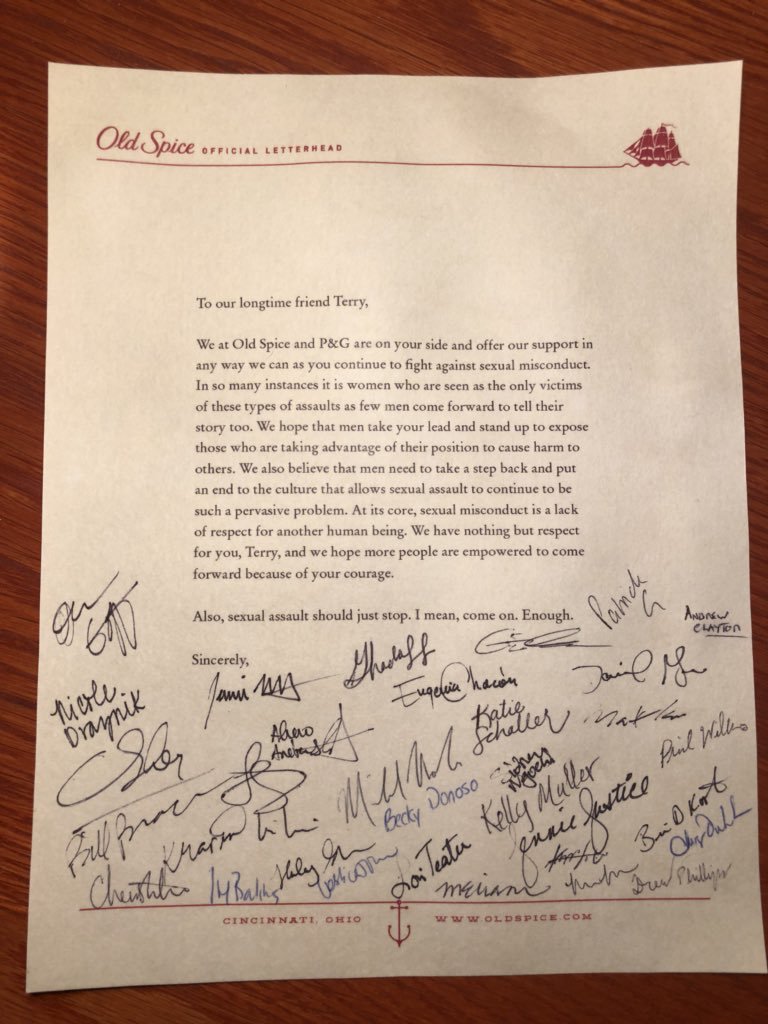 Old Spice OFFICIAL LETTERHEAD
To our longtime friend Terry,
We at Old Spice and P&G are on your side and offer our support in
any way we can as you continue to fight against sexual misconduct.
In so many instances it is women who are seen as the only victims
of these types of assaults as few men come forward to tell their
story too. We hope that men take your lead and stand up to expose
those who are taking advantage of their position to cause harm to
others. We also believe that men need to take a step back and put
an end to the culture that allows sexual assault to continue to be
such a pervasive problem. At its core, sexual misconduct is a lack
of respect for another human being. We have nothing but respect
for you, Terry, and we hope more people are empowered to come
forward because of your courage.
Also, sexual assault should just stop. I mean, come on. Enough.
Sincerely,
Patrick
ANDREW
CLAYTON
Eugenia Chacón
Nicole
Draznik
Katie
Schaller
Becky Donoso
Kelly Muller
Jennie Justice
Phil
Bill
Lori Teater
Drew Phillips
CINCINNATI, OHIO
WWW.OLDSPICE.COM